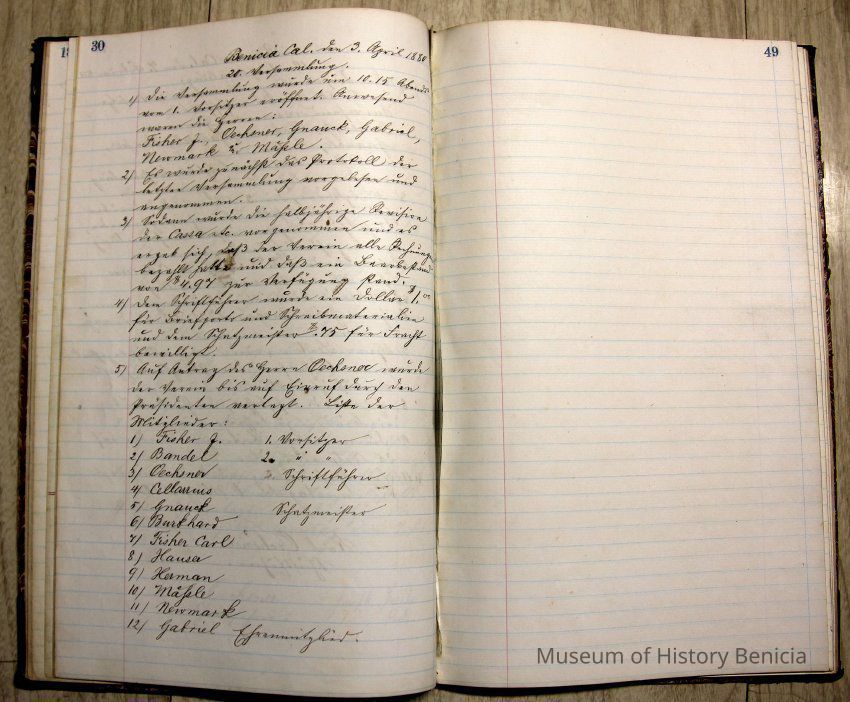 30
Benicia Cal. den 3. April 1880
20. Versammlung.
1) Die Versammlung wurde um 10.15 Abends
vom 1. Vorsitzer eröffnet. Anwesend
waren die Herren:
Fisher J., Oechsner, Gnauck, Gabriel,
Newmark u. Mäsele.
2) Es wurde zunächst das Protokoll der
letzten Versammlung vorgelesen und
angenommen.
3) Sodann wurde die halbjährige Revision
der Cassa etc. vorgenommen und es
ergab sich, daß der Verein alle Rechnungen
bezahlt hatte und daß ein Baarbestand
von $4.97 zur Verfügung stand.
4) Dem Schriftführer wurde ein Dollar $1.00
für Briefporto und Schreibmaterialien
und dem Schatzmeister $.75 für Fracht
bewilligt.
5) Auf Antrag des Herrn Oechsner wurde
der Verein bis auf Einruf durch den
Präsidenten vertagt. Liste der
Mitglieder:
1) Fisher J. 1. Vorsitzer
2) Bandel 2. " "
3) Oechsner Schriftführer
4) Cellarius
5) Gnauck Schatzmeister
6) Burkhard
7) Fisher Carl
8) Hauser
9) Herman
10) Mäsele
11) Newmark
12) Gabriel Ehrenmitglied.
49
Museum of History Benicia